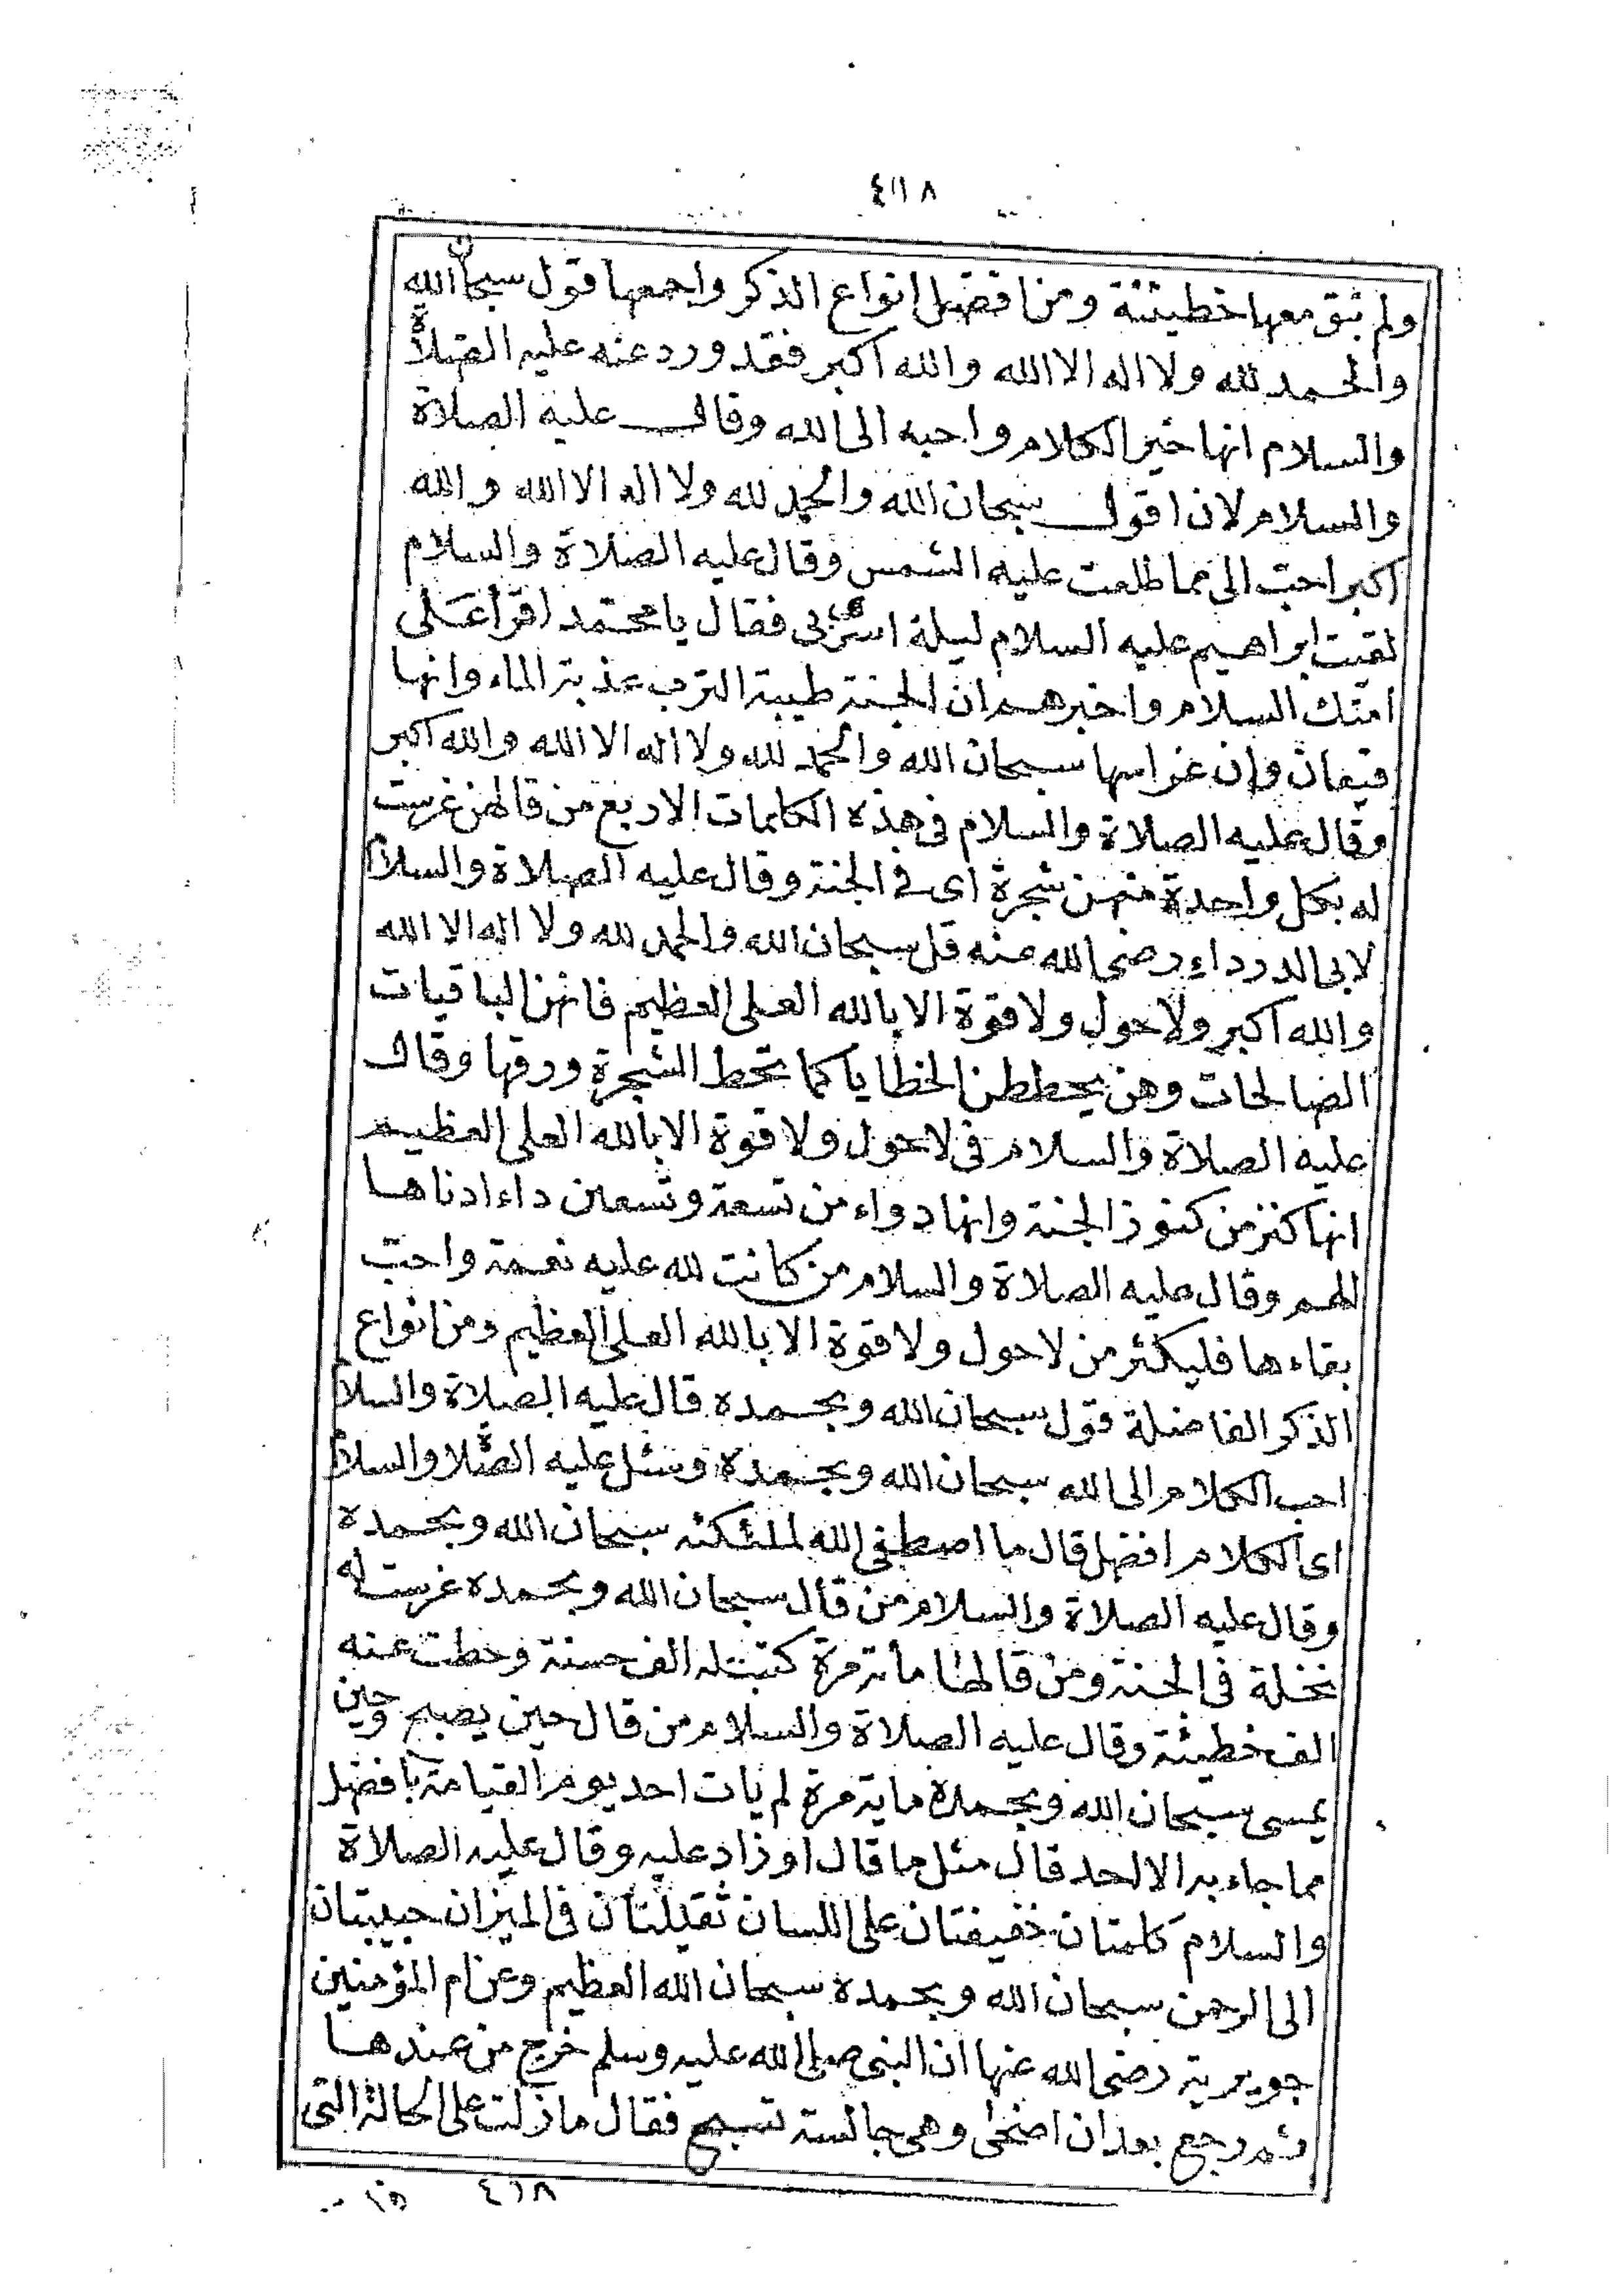 ٤١٨
ولم تبق معها خطيئة ومن افضل انواع الذكر واجمعها قول سبحان الله
والحمد لله ولا اله الا الله والله اكبر فقد ورد عنه عليه الصلاة
والسلام انها خير الكلام واحبه الى الله وقال عليه الصلاة
والسلام لان اقول سبحان الله والحمد لله ولا اله الا الله والله
اكبر احب الى مما طلعت عليه الشمس وقال عليه الصلاة والسلام
لقيت ابراهيم عليه السلام ليلة اسرى بى فقال يا محمد اقرأ على
امتك السلام واخبرهم ان الجنة طيبة الترب عذبة الماء وانها
قيعان وان غراسها سبحان الله والحمد لله ولا اله الا الله والله اكبر
وقال عليه الصلاة والسلام فى هذه الكلمات الاربع من قالهن غرست
له بكل واحدة منهن شجرة اى فى الجنة وقال عليه الصلاة والسلام
لابى الدرداء رضى الله عنه قل سبحان الله والحمد لله ولا اله الا الله
والله اكبر ولا حول ولا قوة الا بالله العلى العظيم فانهن الباقيات
الصالحات وهن يحططن الخطايا كما تحط الشجرة ورقها وقال
عليه الصلاة والسلام فى لا حول ولا قوة الا بالله العلى العظيم
انها كنز من كنوز الجنة وانها دواء من تسعة وتسعين داء ادناها
الهم وقال عليه الصلاة والسلام من كانت لله عليه نعمة واحب
بقاءها فليكثر من لا حول ولا قوة الا بالله العلى العظيم ومن انواع
الذكر الفاضلة قول سبحان الله وبحمده قال عليه الصلاة والسلام
احب الكلام الى الله سبحان الله وبحمده وسئل عليه الصلاة والسلام
اى الكلام افضل قال ما اصطفى الله لملئكته سبحان الله وبحمده
وقال عليه الصلاة والسلام من قال سبحان الله وبحمده غرست له
نخلة فى الجنة ومن قالها مأتة مرة كتبت له الف حسنة وحطت عنه
الف خطيئة وقال عليه الصلاة والسلام من قال حين يصبح وحين
يمسى سبحان الله وبحمده ماية مرة لم يات احد يوم القيامة بأفضل
مما جاء به الا احد قال مثل ما قال او زاد عليه وقال عليه الصلاة
والسلام كلمتان خفيفتان على اللسان ثقيلتان فى الميزان حبيبتان
الى الرحمن سبحان الله وبحمده سبحان الله العظيم وعن ام المؤمنين
جويرية رضى الله عنها ان النبى صلى الله عليه وسلم خرج من عندها
ثم رجع بعد ان اضحى وهى جالسة تسبح فقال ما زلت على الحالة التى
٤١٨